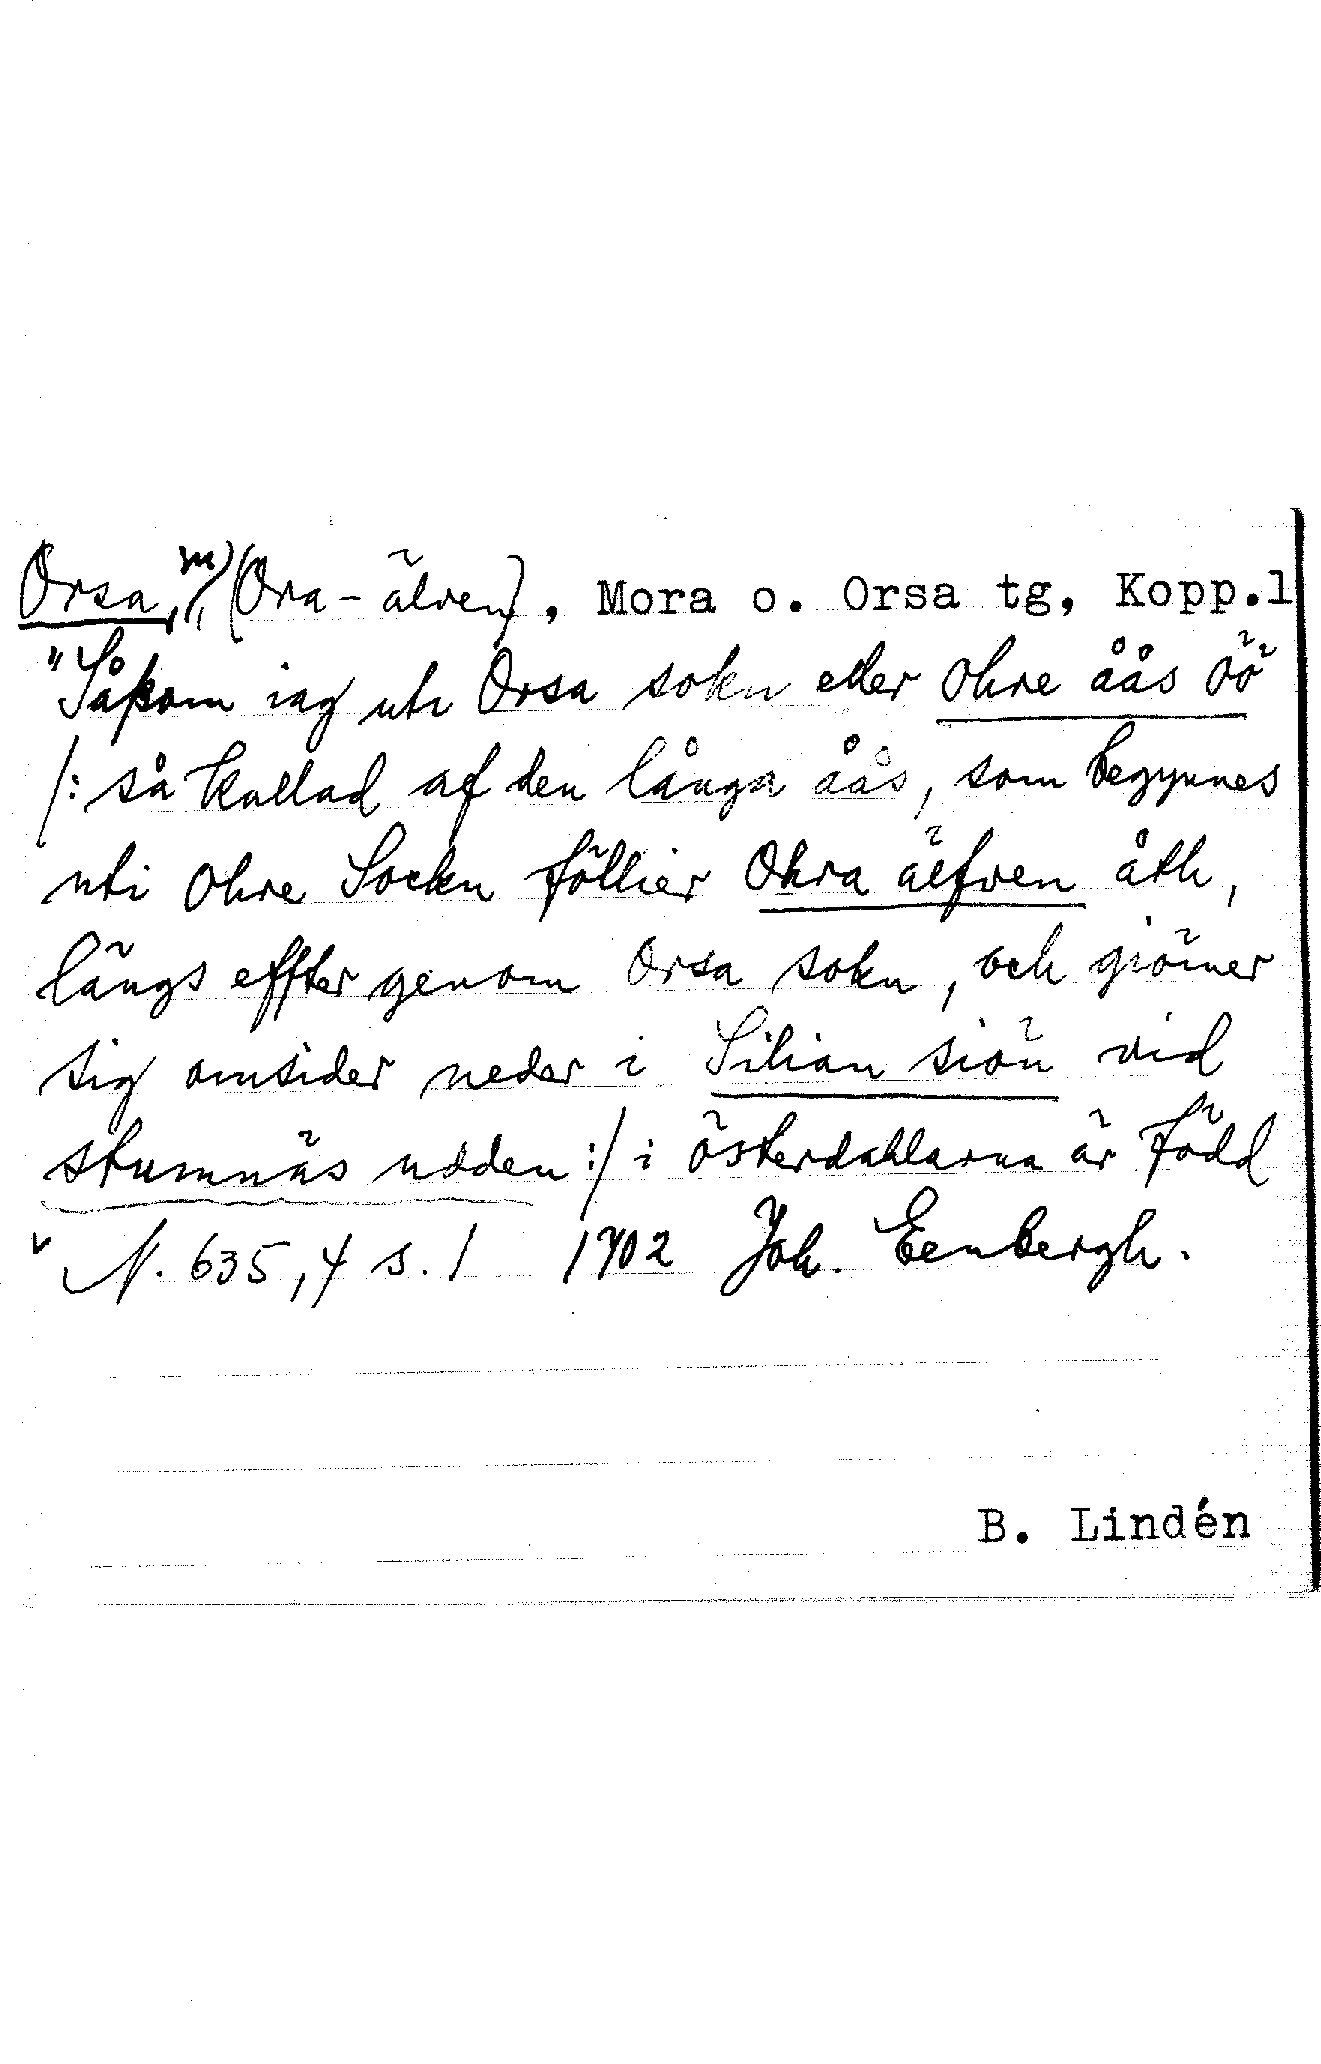 Orsa, m, (Ora-älven), Mora o. Orsa tg, Kopp.l
"Såsom iag uti Orsa sokn eller ohre åås öö
/: så kallad af den långa åås, som begynnes
uti ohre Sockn föllier Ohra älfven åth,
längs effter genom Orsa sokn, och giömer
sig omsider neder i Silian siön vid
stumnäs udden :/ i österdahlarna är född
N. 635,4 s. 1 1702 Joh. Eenbergh.
B. Lindén